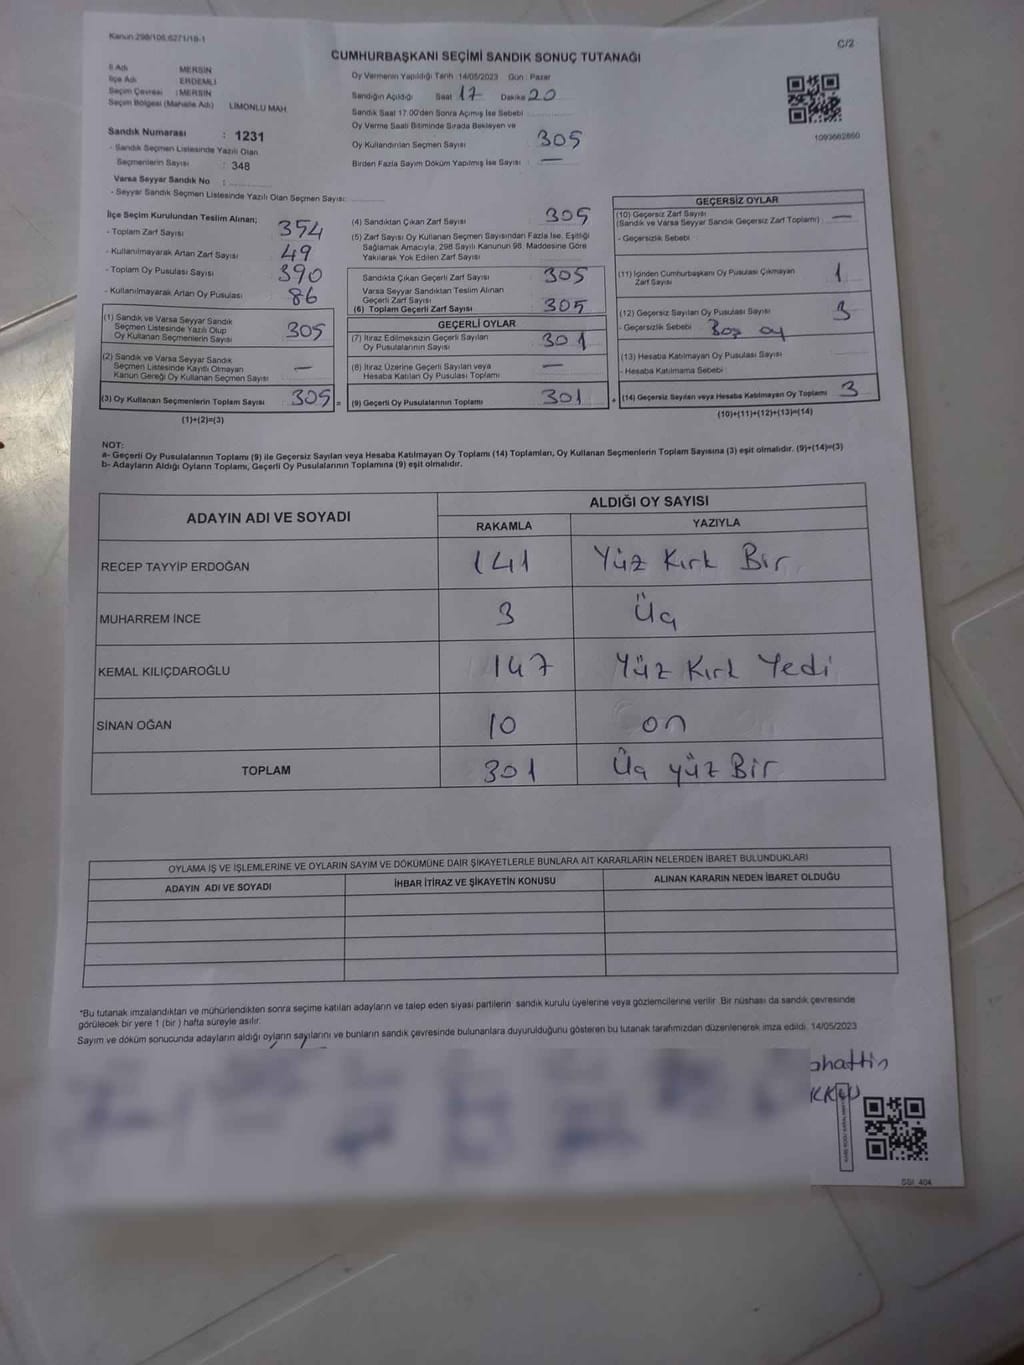 Kanun 298/106,6271/18-1
C/2
CUMHURBAŞKANI SEÇİMİ SANDIK SONUÇ TUTANAĞI
İl Adı MERSİN
İlçe Adı ERDEMLİ
Seçim Çevresi : MERSİN
Seçim Bölgesi (Mahalle Adı) LİMONLU MAH
Sandık Numarası : 1231
- Sandık Seçmen Listesinde Yazılı Olan
Seçmenlerin Sayısı : 348
Varsa Seyyar Sandık No :
- Seyyar Sandık Seçmen Listesinde Yazılı Olan Seçmen Sayısı:
Oy Vermenin Yapıldığı Tarih :14/05/2023 Gün : Pazar
Sandığın Açıldığı Saat 17 Dakika 20
Sandık Saat 17.00'den Sonra Açılmış İse Sebebi :
Oy Verme Saati Bitiminde Sırada Bekleyen ve
Oy Kullandırılan Seçmen Sayısı : 305
Birden Fazla Sayım Döküm Yapılmış İse Sayısı : —
1093662860
İlçe Seçim Kurulundan Teslim Alınan;
- Toplam Zarf Sayısı : 354
- Kullanılmayarak Artan Zarf Sayısı : 49
- Toplam Oy Pusulası Sayısı : 390
- Kullanılmayarak Artan Oy Pusulası : 86
(1) Sandık ve Varsa Seyyar Sandık
Seçmen Listesinde Yazılı Olup
Oy Kullanan Seçmenlerin Sayısı : 305
(2) Sandık ve Varsa Seyyar Sandık
Seçmen Listesinde Kayıtlı Olmayan
Kanun Gereği Oy Kullanan Seçmen Sayısı : —
(3) Oy Kullanan Seçmenlerin Toplam Sayısı : 305 =
(1)+(2)=(3)
(4) Sandıktan Çıkan Zarf Sayısı : 305
(5) Zarf Sayısı Oy Kullanan Seçmen Sayısından Fazla İse, Eşitliği
Sağlamak Amacıyla, 298 Sayılı Kanunun 98. Maddesine Göre
Yakılarak Yok Edilen Zarf Sayısı :
Sandıkta Çıkan Geçerli Zarf Sayısı : 305
Varsa Seyyar Sandıktan Teslim Alınan
Geçerli Zarf Sayısı :
(6) Toplam Geçerli Zarf Sayısı : 305
GEÇERLİ OYLAR
(7) İtiraz Edilmeksizin Geçerli Sayılan
Oy Pusulalarının Sayısı : 301
(8) İtiraz Üzerine Geçerli Sayılan veya
Hesaba Katılan Oy Pusulası Toplamı : —
(9) Geçerli Oy Pusulalarının Toplamı : 301 +
GEÇERSİZ OYLAR
(10) Geçersiz Zarf Sayısı
(Sandık ve Varsa Seyyar Sandık Geçersiz Zarf Toplamı) : —
- Geçersizlik Sebebi :
(11) İçinden Cumhurbaşkanı Oy Pusulası Çıkmayan
Zarf Sayısı : 1
(12) Geçersiz Sayılan Oy Pusulası Sayısı : 3
- Geçersizlik Sebebi : Boş oy
(13) Hesaba Katılmayan Oy Pusulası Sayısı :
- Hesaba Katılmama Sebebi :
(14) Geçersiz Sayılan veya Hesaba Katılmayan Oy Toplamı : 3
(10)+(11)+(12)+(13)=(14)
NOT:
a- Geçerli Oy Pusulalarının Toplamı (9) ile Geçersiz Sayılan veya Hesaba Katılmayan Oy Toplamı (14) Toplamları, Oy Kullanan Seçmenlerin Toplam Sayısına (3) eşit olmalıdır. (9)+(14)=(3)
b- Adayların Aldığı Oyların Toplamı, Geçerli Oy Pusulalarının Toplamına (9) eşit olmalıdır.
ADAYIN ADI VE SOYADI
ALDIĞI OY SAYISI
RAKAMLA YAZIYLA
RECEP TAYYİP ERDOĞAN 141 Yüz Kırk Bir
MUHARREM İNCE 3 Üç
KEMAL KILIÇDAROĞLU 147 Yüz Kırk Yedi
SİNAN OĞAN 10 on
TOPLAM 301 Üç yüz Bir
OYLAMA İŞ VE İŞLEMLERİNE VE OYLARIN SAYIM VE DÖKÜMÜNE DAİR ŞİKAYETLERLE BUNLARA AİT KARARLARIN NELERDEN İBARET BULUNDUKLARI
ADAYIN ADI VE SOYADI İHBAR İTİRAZ VE ŞİKAYETİN KONUSU ALINAN KARARIN NEDEN İBARET OLDUĞU
*Bu tutanak imzalandıktan ve mühürlendikten sonra seçime katılan adayların ve talep eden siyasi partilerin sandık kurulu üyelerine veya gözlemcilerine verilir. Bir nüshası da sandık çevresinde
görülecek bir yere 1 (bir ) hafta süreyle asılır.
Sayım ve döküm sonucunda adayların aldığı oyların sayılarını ve bunların sandık çevresinde bulunanlara duyurulduğunu gösteren bu tutanak tarafımızdan düzenlenerek imza edildi. 14/05/2023
ahattin
SSI_404